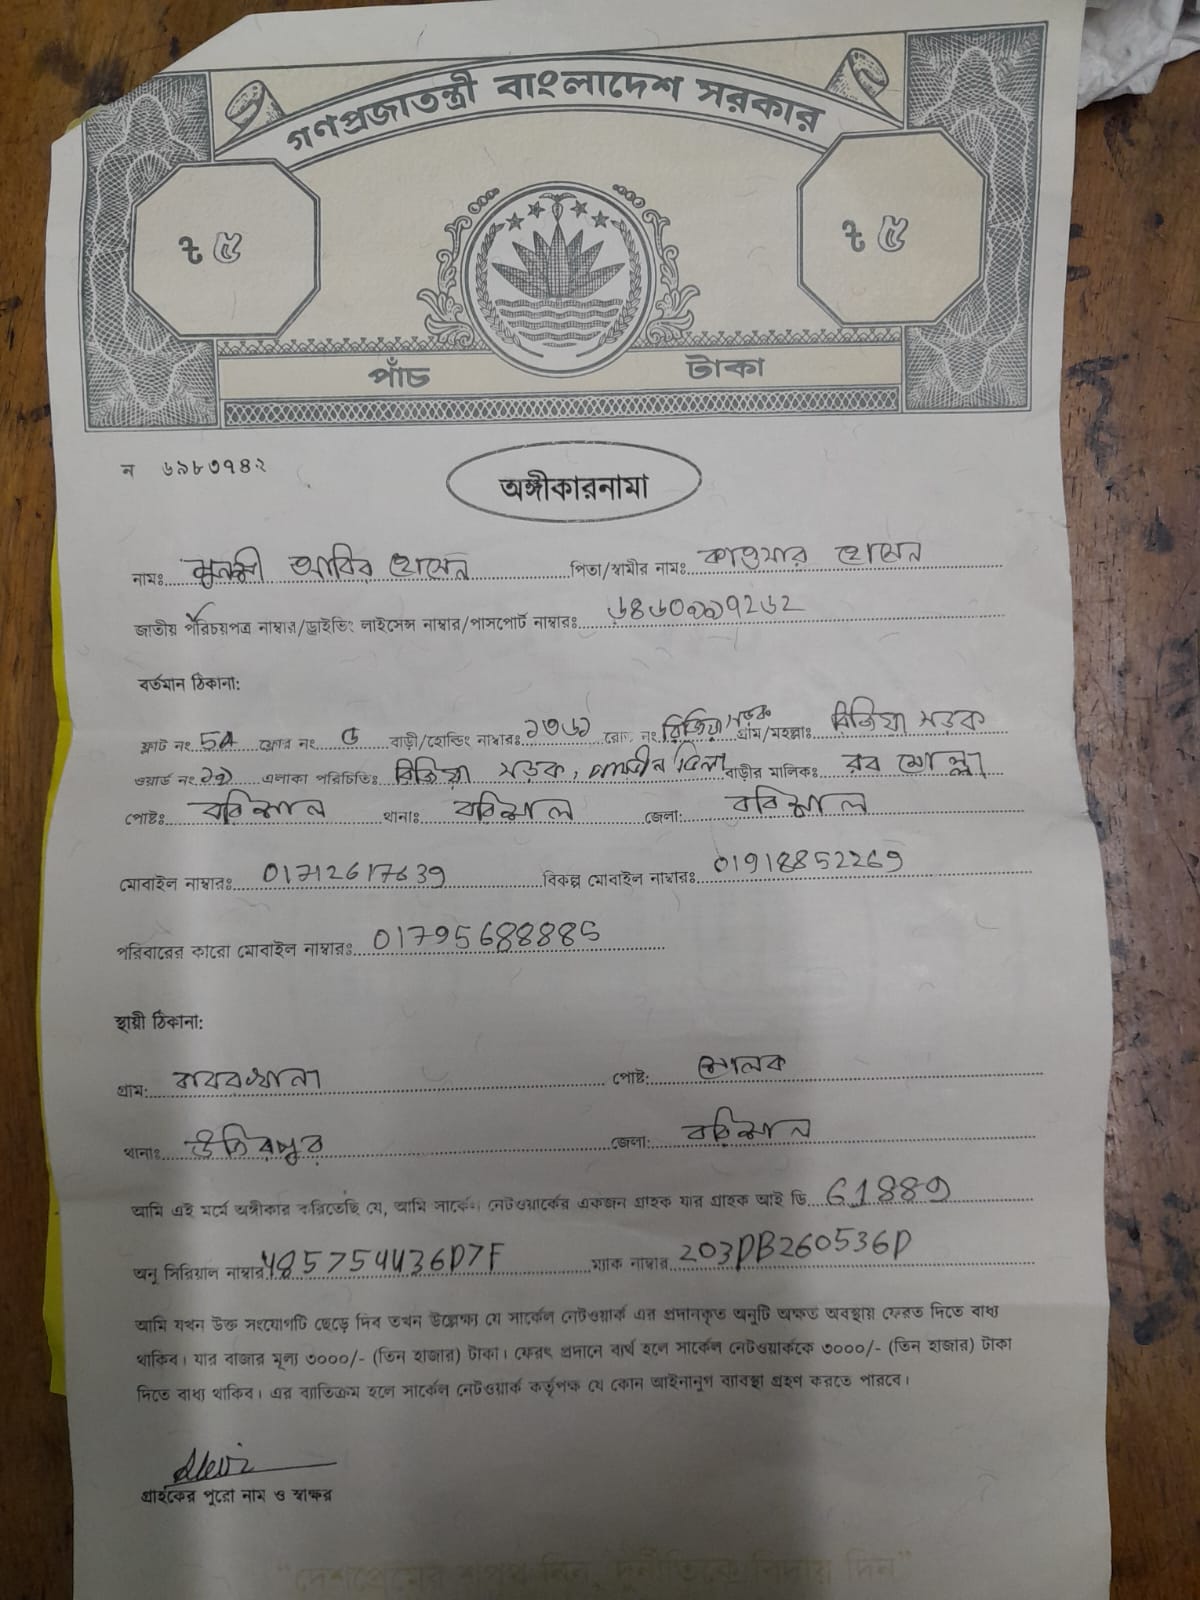 গণপ্রজাতন্ত্রী বাংলাদেশ সরকার
৳ ৫ ৳ ৫
পাঁচ টাকা
ন ৬৯৮৩৭৪২
অঙ্গীকারনামা
নামঃ মুনসী আবির হোসেন পিতা/স্বামীর নাম: কাওসার হোসেন
জাতীয় পরিচয়পত্র নাম্বার/ড্রাইভিং লাইসেন্স নাম্বার/পাসপোর্ট নাম্বারঃ
বর্তমান ঠিকানা:
ফ্লাট নং 5A ফ্লোর নং বাড়ী/হোল্ডিং নাম্বারঃ ১৩৬১ রোড নং রিজিয়া সড়ক গ্রাম/মহল্লাঃ রিজিয়া সড়ক
ওয়ার্ড নং এলাকা পরিচিতিঃ রিজিয়া সড়ক, ভিলা বাড়ীর মালিকঃ রব মোল্লা
পোষ্টঃ বরিশাল থানাঃ বরিশাল জেলা: বরিশাল
মোবাইল নাম্বারঃ 01712617639 বিকল্প মোবাইল নাম্বারঃ 01918852269
পরিবারের কারো মোবাইল নাম্বারঃ 01795688885
স্থায়ী ঠিকানা:
গ্রাম: বাবরখানা পোষ্ট: শোলক
থানাঃ উজিরপুর জেলা: বরিশাল
আমি এই মর্মে অঙ্গীকার করিতেছি যে, আমি সার্কেল নেটওয়ার্কের একজন গ্রাহক যার গ্রাহক আই ডি G1889
অনু সিরিয়াল নাম্বার 485754436D7F ম্যাক নাম্বার 203DB260536D
আমি যখন উক্ত সংযোগটি ছেড়ে দিব তখন উল্লেক্ষ্য যে সার্কেল নেটওয়ার্ক এর প্রদানকৃত অনুটি অক্ষত অবস্থায় ফেরত দিতে বাধ্য
থাকিব। যার বাজার মূল্য ৩০০০/- (তিন হাজার) টাকা। ফেরৎ প্রদানে ব্যর্থ হলে সার্কেল নেটওয়ার্ককে ৩০০০/- (তিন হাজার) টাকা
দিতে বাধ্য থাকিব। এর ব্যাতিক্রম হলে সার্কেল নেটওয়ার্ক কর্তৃপক্ষ যে কোন আইনানুগ ব্যাবস্থা গ্রহণ করতে পারবে।
গ্রাহকের পুরো নাম ও স্বাক্ষর
“দেশপ্রেমের শপথ নিন, দুর্নীতিকে বিদায় দিন”